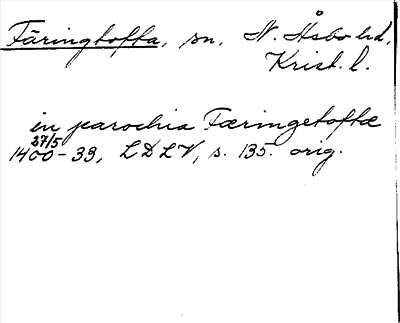 Färingtofta, sn, N. Åsbo hd,
Krist. l.
in parochia Færingetoftæ
27/5
1400-33, LDLV, s. 135. orig.